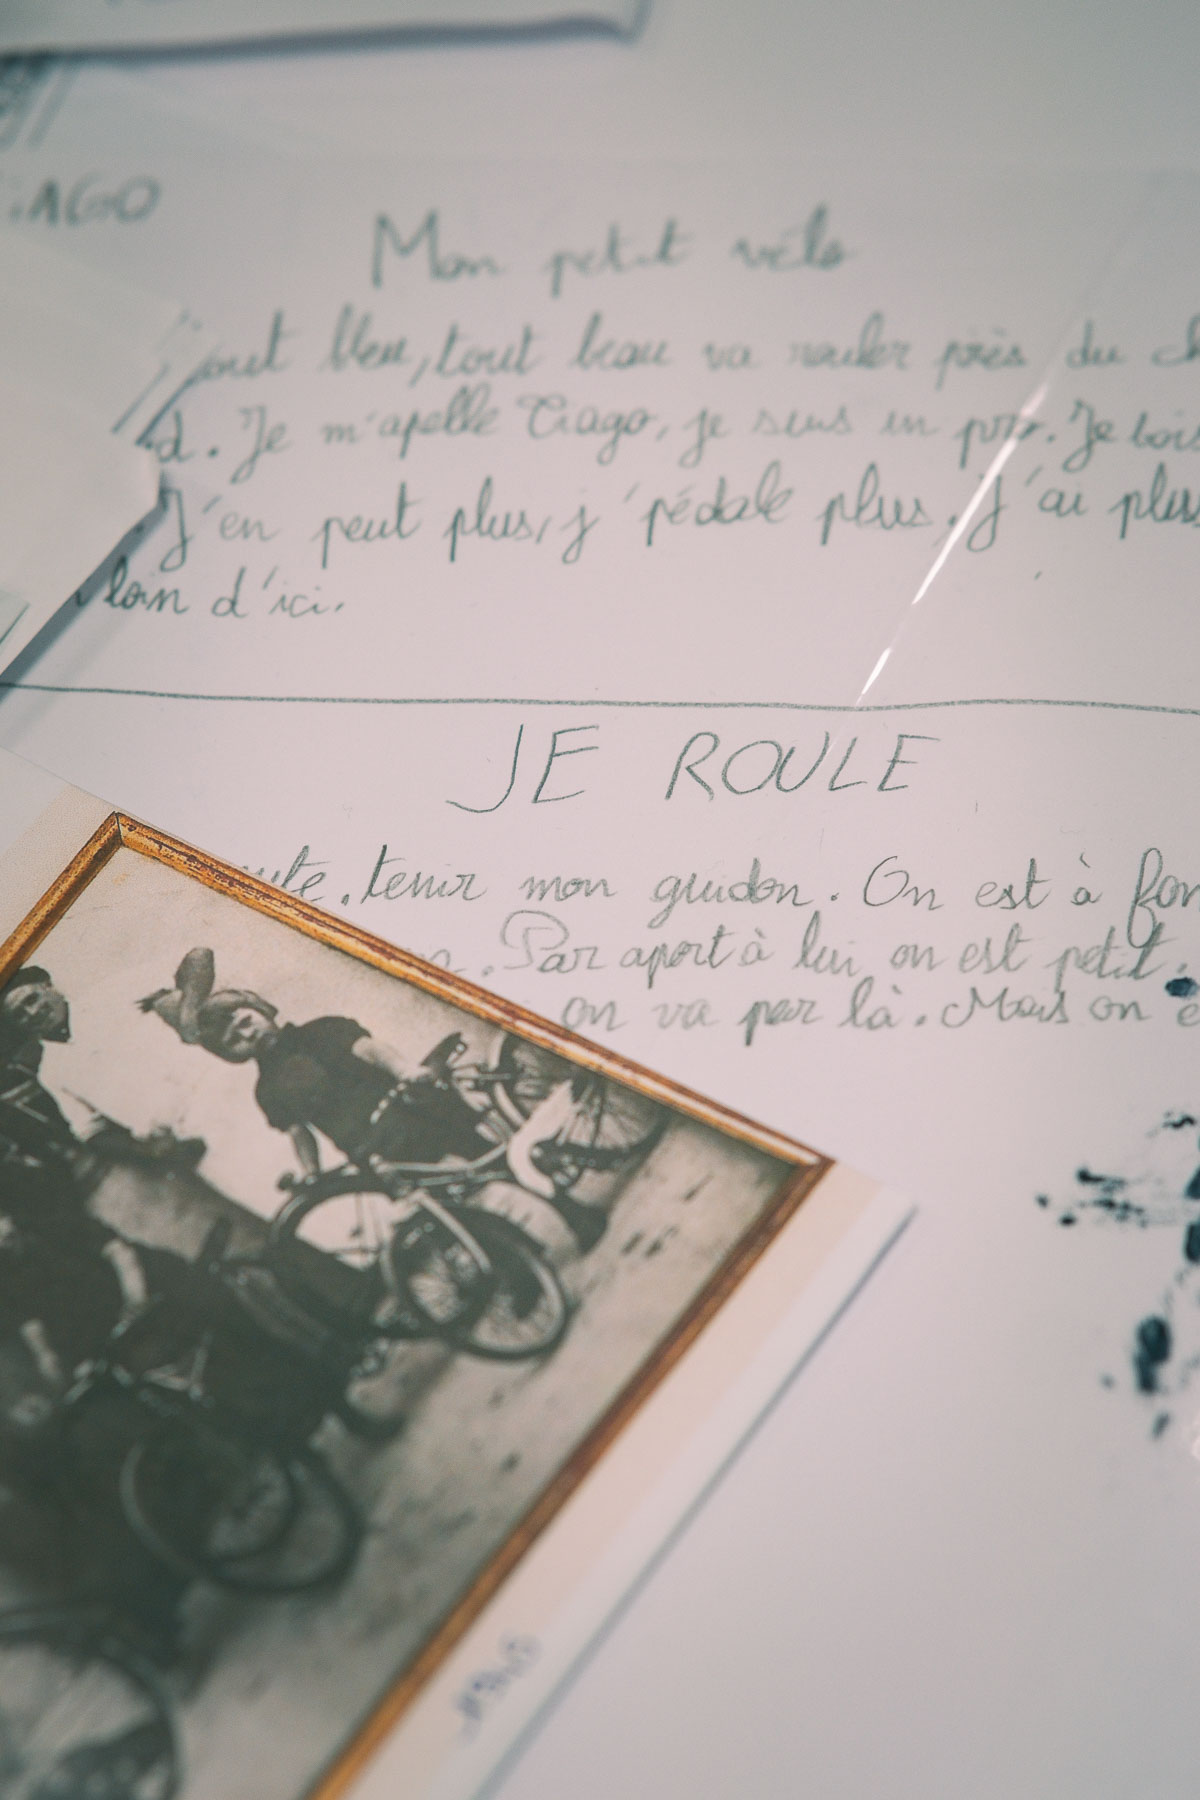 TiAGO
Mon petit vélo
tout bleu, tout beau va rouler près du
d. Je m'apelle Tiago, je suis un pro. Je bois
J'en peut plus, j'pédale plus. J'ai plus
loin d'ici.
JE ROULE
tenir mon guidon. On est à fon
Par aport à lui on est petit.
on va par là. Mais on e